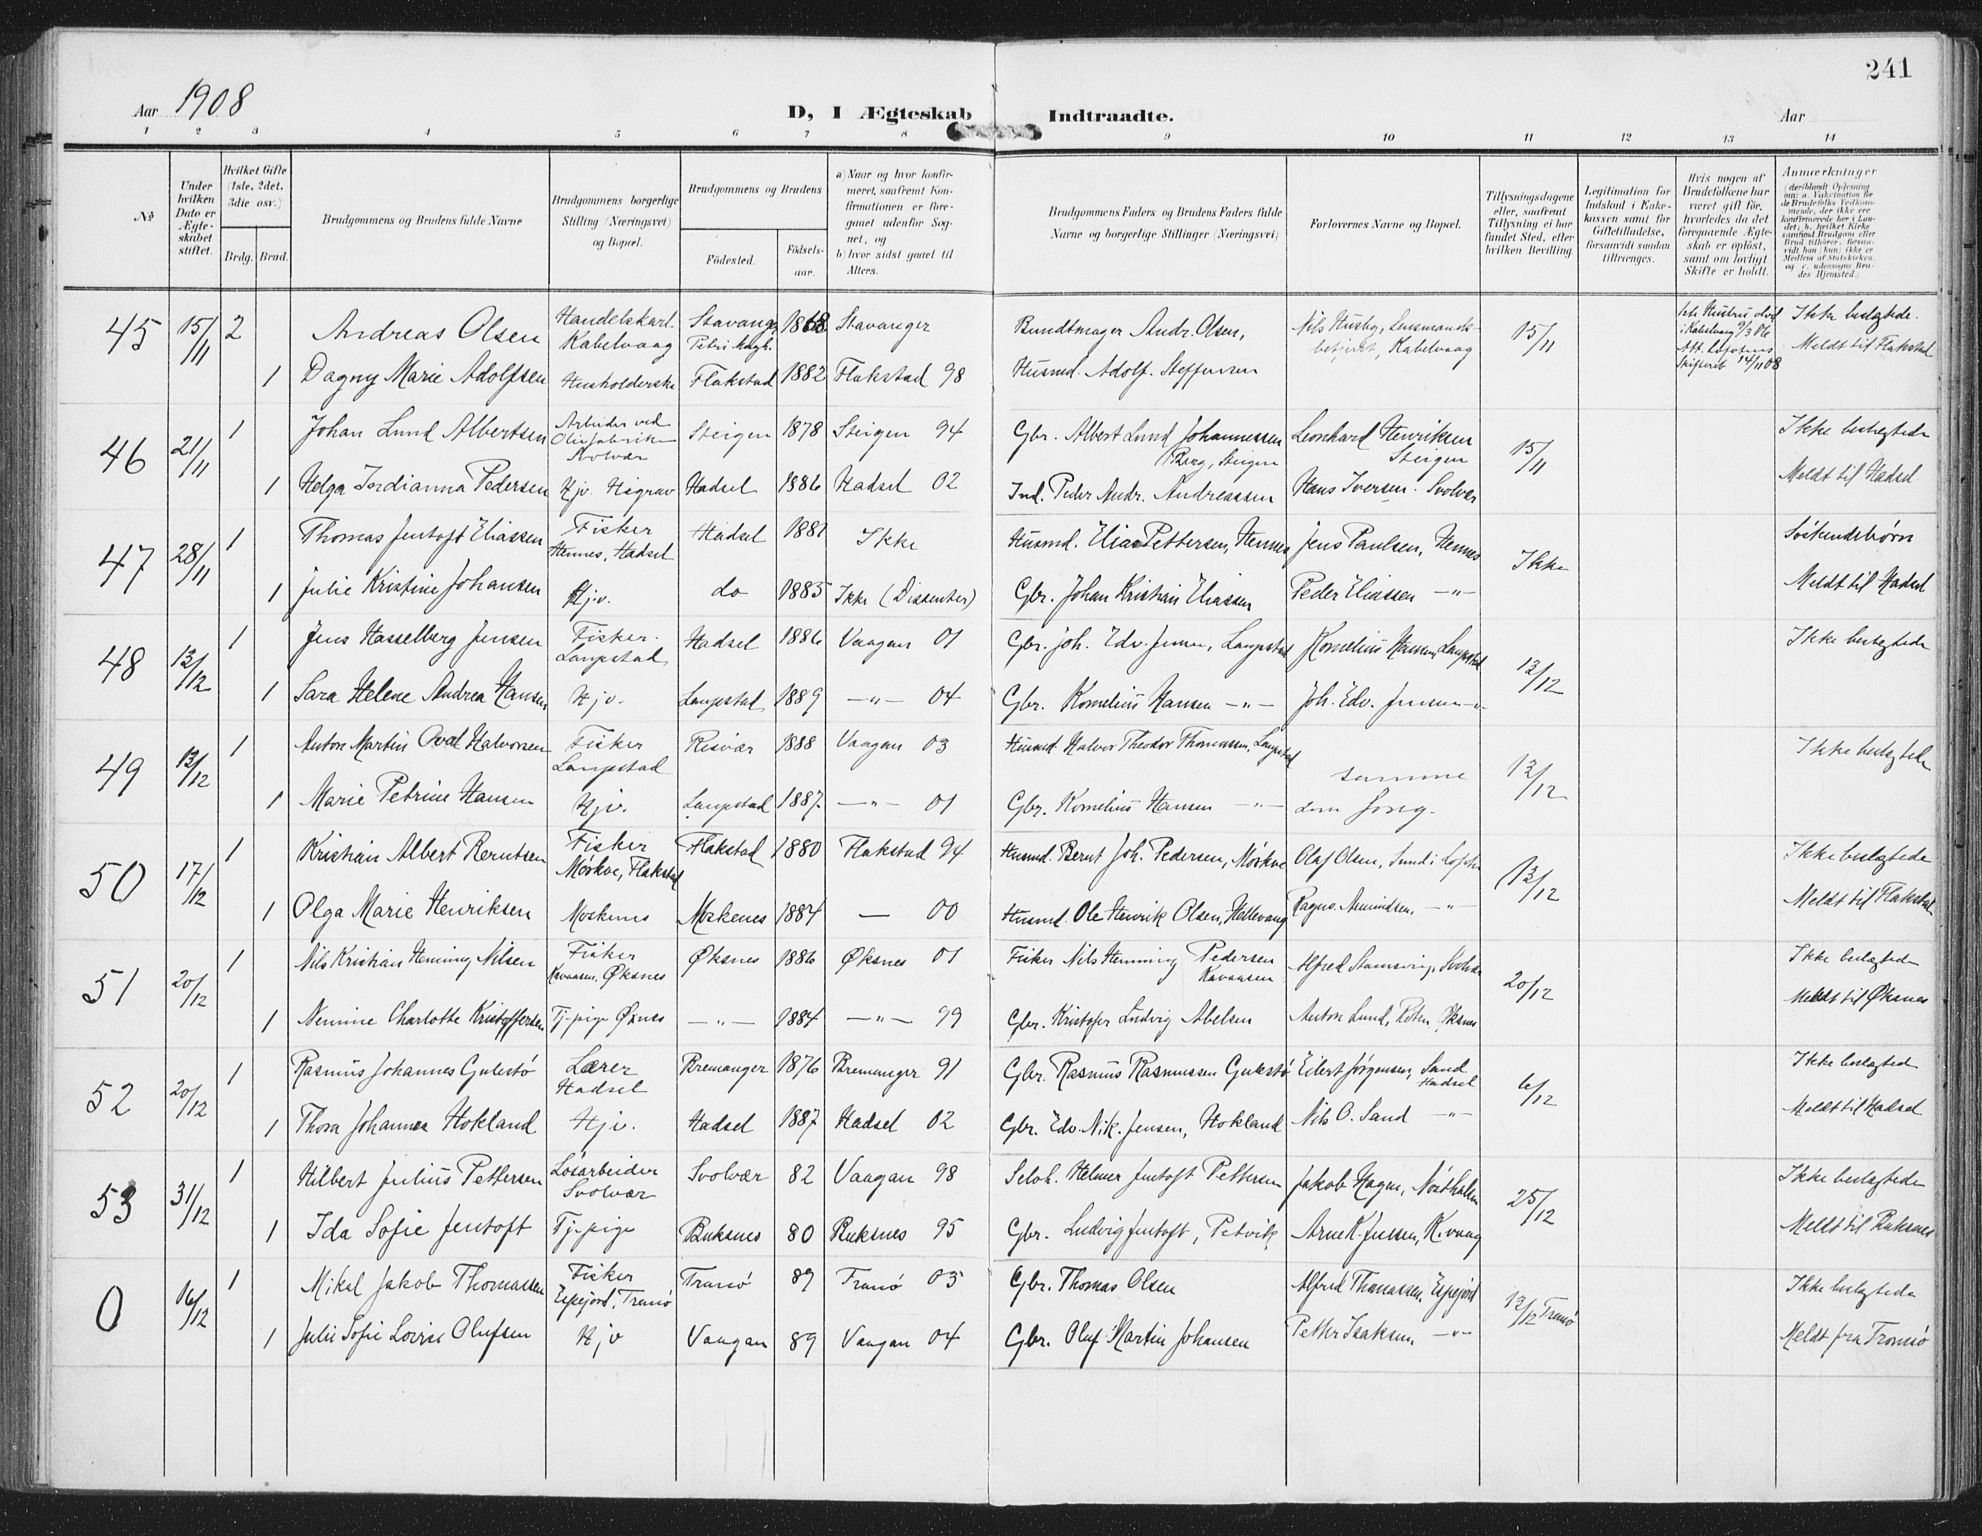 241
Aar 1908
D, I Ægteskab Indtraadte.
Aar
1 2 3 4 5 6 7 8 9 10 11 12 13 14
No
Under hvilken Dato er Ægteskabet stiftet.
Hvilket Gifte (1ste, 2det, 3die osv.)
Brdg. Brud.
Brudgommens og Brudens fulde Navne
Brudgommens borgerlige Stilling (Næringsvei) og Bopæl.
Brudgommens og Brudens
Fødested.
Fødselsaar.
a) Naar og hvor konfirmeret, saafremt Konfirmationen er foregaaet udenfor Sognet, og
b) hvor sidst gaaet til Alters.
Brudgommens Faders og Brudens Faders fulde Navne og borgerlige Stillinger (Næringsvei)
Forlovernes Navne og Bopæl.
Tillysningsdagene eller, saafremt Tillysning ei har fundet Sted, efter hvilken Bevilling.
Legitimation for Indskud i Enkekassen samt for Giftetilladelse, forsaavidt saadan tiltrænges.
Hvis nogen af Brudefolkene har været gift før, hvorledes da det foregaaende Ægteskab er opløst, samt om lovligt Skifte er holdt.
Anmærkninger
45 15/11 2 Andreas Olsen Handelskarl Kabelvaag Stavanger Petri 1868 Stavanger Bundtmager Andr. Olsen, Nils Husby, Lensmandsbetjent, Kabelvaag 15/11 Ikke beslægtede.
1 Dagny Marie Adolfsen Husholderske Flakstad 1882 Flakstad 98 Husmd. Adolf Steffensen Meldt til Flakstad
46 21/11 1 Johan Lund Albertsen Arbeider ved Oliefabriken Svolvær Steigen 1878 Steigen 94 Gbr. Albert Lund Johannessen Berg, Steigen Leonhard Henriksen Steigen 15/11 Ikke beslægtede
1 Helga Indianna Pedersen Hjv. Hadsel 1886 Hadsel 02 Ind. Peder Andr. Andreassen Hans Iversen. Svolvær Meldt til Hadsel
47 28/11 1 Thomas Jentoft Eliassen Fisker Hennes, Hadsel Hadsel 1881 Ikke Husmd. Elias Pettersen, Hennes Jens Paulsen, Hennes Ikke Søskendebørn
1 Julie Kristine Johansen Hjv. do 1885 Ikke (Dissenter) Gbr. Johan Kristian Eliassen Peder Eliassen -"- Meldt til Hadsel
48 13/12 1 Jens Hasselberg Jensen Fisker. Laupstad Hadsel 1886 Vaagan 01 Gbr. Joh. Edv. Jensen, Laupstad Kornelius Hansen, Laupstad 13/12 Ikke beslægtede
1 Sara Helene Andrea Hansen Hjv. Laupstad 1889 -"- 04 Gbr. Kornelius Hansen -"- Joh. Edv. Jensen -"-
49 13/12 1 Anton Martin Oval Halvorsen Fisker Laupstad Risvær 1888 Vaagan 03 Husmd. Halvor Theodor Thomassen, Laupstad samme 13/12 Ikke beslægtede
1 Marie Petrine Hansen Hjv. Laupstad 1887 -"- 01 Gbr. Kornelius Hansen -"- som forrig.
50 17/12 1 Kristian Albert Berntsen Fisker Mørkve, Flakstad Flakstad 1880 Flakstad 94 Husmd. Bernt Joh. Pedersen, Mørkve Olaf Olsen, Sund i Lofoten 13/12 Ikke beslægtede
1 Olga Marie Henriksen Moskenes Moskenes 1884 — 00 Husmd. Ole Henrik Olsen, Hellevaag Ragnv. Amundsen. -"- Meldt til Flakstad
51 20/12 1 Nils Kristian Henning Nilsen Fisker Kavaasen, Øksnes Øksnes 1886 Øksnes 01 Fisker Nils Henning Pedersen Kavaasen Alfred Stamsvig, Svolvær 20/12 Ikke beslægtede
1 Nemine Charlotte Kristoffersen Tj-pige Øxnes -"- 1884 -"- 99 Gbr. Kristofer Ludvig Abelsen Anton Lund, Øksnes Meldt til Øksnes
52 20/12 1 Rasmus Johannes Gulestø Lærer Hadsel Bremanger 1876 Bremanger 91 Gbr. Rasmus Rasmussen Gulestø Eilert Jørgensen, Sand Hadsel 6/12 Ikke beslægtede
1 Thora Johannea Hokland Hjv. Hadsel 1887 Hadsel 02 Gbr. Edv. Nik. Jensen, Hokland Nils O. Sand -"- Meldt til Hadsel
53 31/12 1 Hilbert Julius Pettersen Løsarbeider Svolvær Svolvær 82 Vaagan 98 Selvh. Helmer Jentoft Pettersen Jakob Hagen, 25/12 Ikke beslægtede
1 Ida Sofie Jentoft Tj-pige Buksnes 80 Buksnes 95 Gbr. Ludvig Jentoft, Petvik Arne K. Jensen, K.vaag Meldt til Buksnes
0 16/12 1 Mikal Jakob Thomassen Fisker Espejord, Tranø Tranø 89 Tranø 03 Gbr. Thomas Olsen Alfred Thomassen, Espejord 13/12 Tranø Ikke beslægtede
1 Julie Sofie Lovise Olufsen Hjv Vaagan 89 Vaagan 04 Gbr. Oluf Martin Johansen Petter Isaksen -"- Meldt fra Tromsø